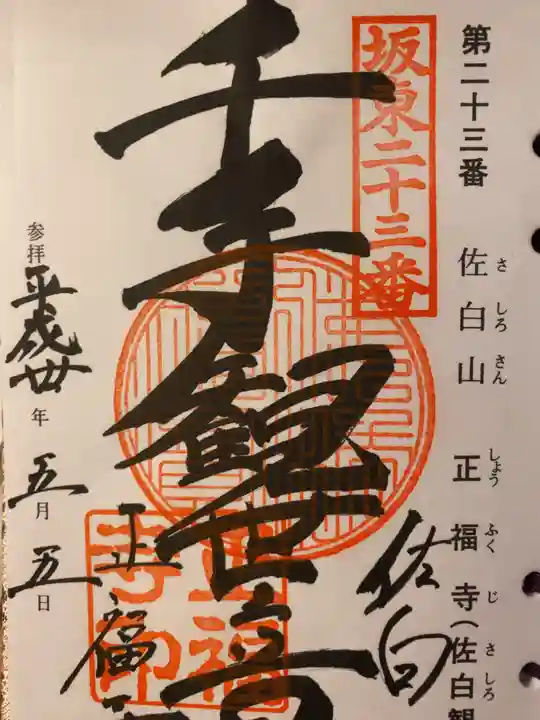 第二十三番 佐白山 正福寺(佐白観
さしろさん しょうふくじ さしろ
坂東二十三番
佐白
千手観世音
正福
正福寺印
参拝平成卅年五月五日